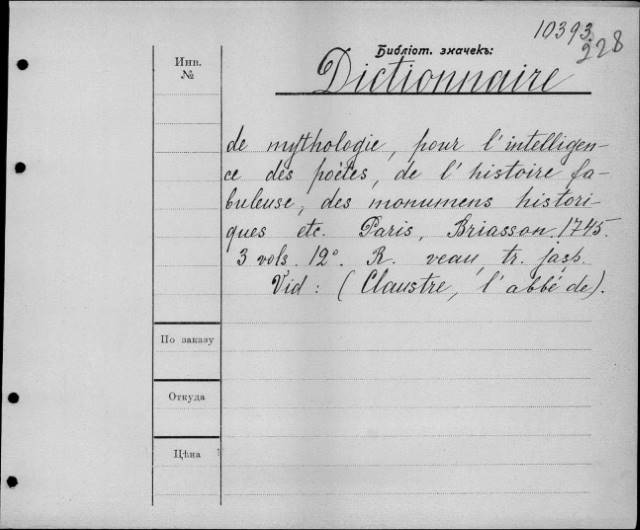 10393
228
Библіот. значекъ:
Инв.
№
Dictionnaire
de mythologie, pour l'intelligen-
ce des poëtes, de l'histoire fa-
buleuse, des monumens histori-
ques etc. Paris, Briasson. 1745.
3 vols. 12°. R. veau, tr. jasp.
Vid: (Claustre, l'abbé de).
По заказу
Откуда
Цѣна